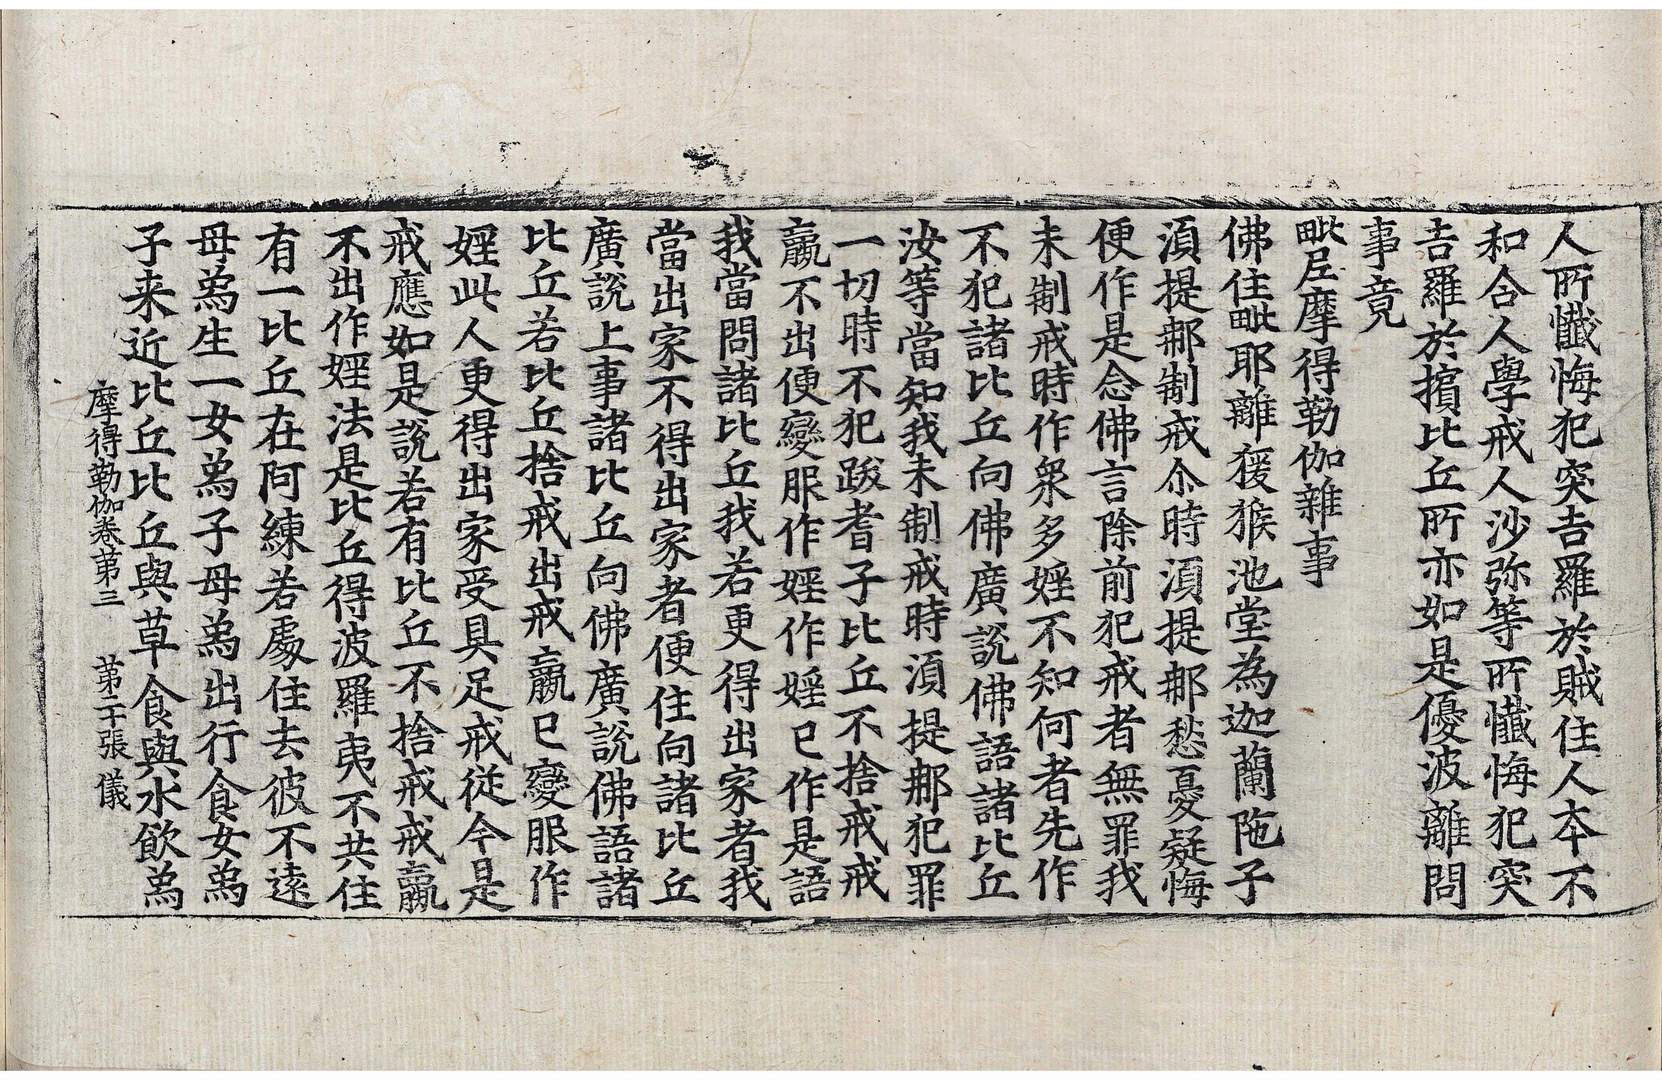 人所懺悔犯突吉羅於賊住人本不
和合人學戒人沙弥等所懺悔犯突
吉羅於擯比丘所亦如是優波離問
事竟
毗尼摩得勒伽雜事
佛住毗耶離獼猴池堂為迦蘭陁子
湏提那制戒尒時湏提那愁憂疑悔
便作是念佛言除前犯戒者無罪我
未制戒時作衆多婬不知何者先作
不犯諸比丘向佛廣說佛語諸比丘
汝等當知我未制戒時湏提那犯罪
一切時不犯跋耆子比丘不捨戒戒
羸不出便變服作婬作婬已作是語
我當問諸比丘我若更得出家者我
當出家不得出家者便住向諸比丘
廣說上事諸比丘向佛廣說佛語諸
比丘若比丘捨戒出戒羸已變服作
婬此人更得出家受具足戒従今是
戒應如是說若有比丘不捨戒戒羸
不出作婬法是比丘得波羅夷不共住
有一比丘在阿練若處住去彼不遠
母為生一女為子母為出行食女為
子来近比丘比丘與草食與水飲為
摩得勒伽卷第三　第二十張　儀